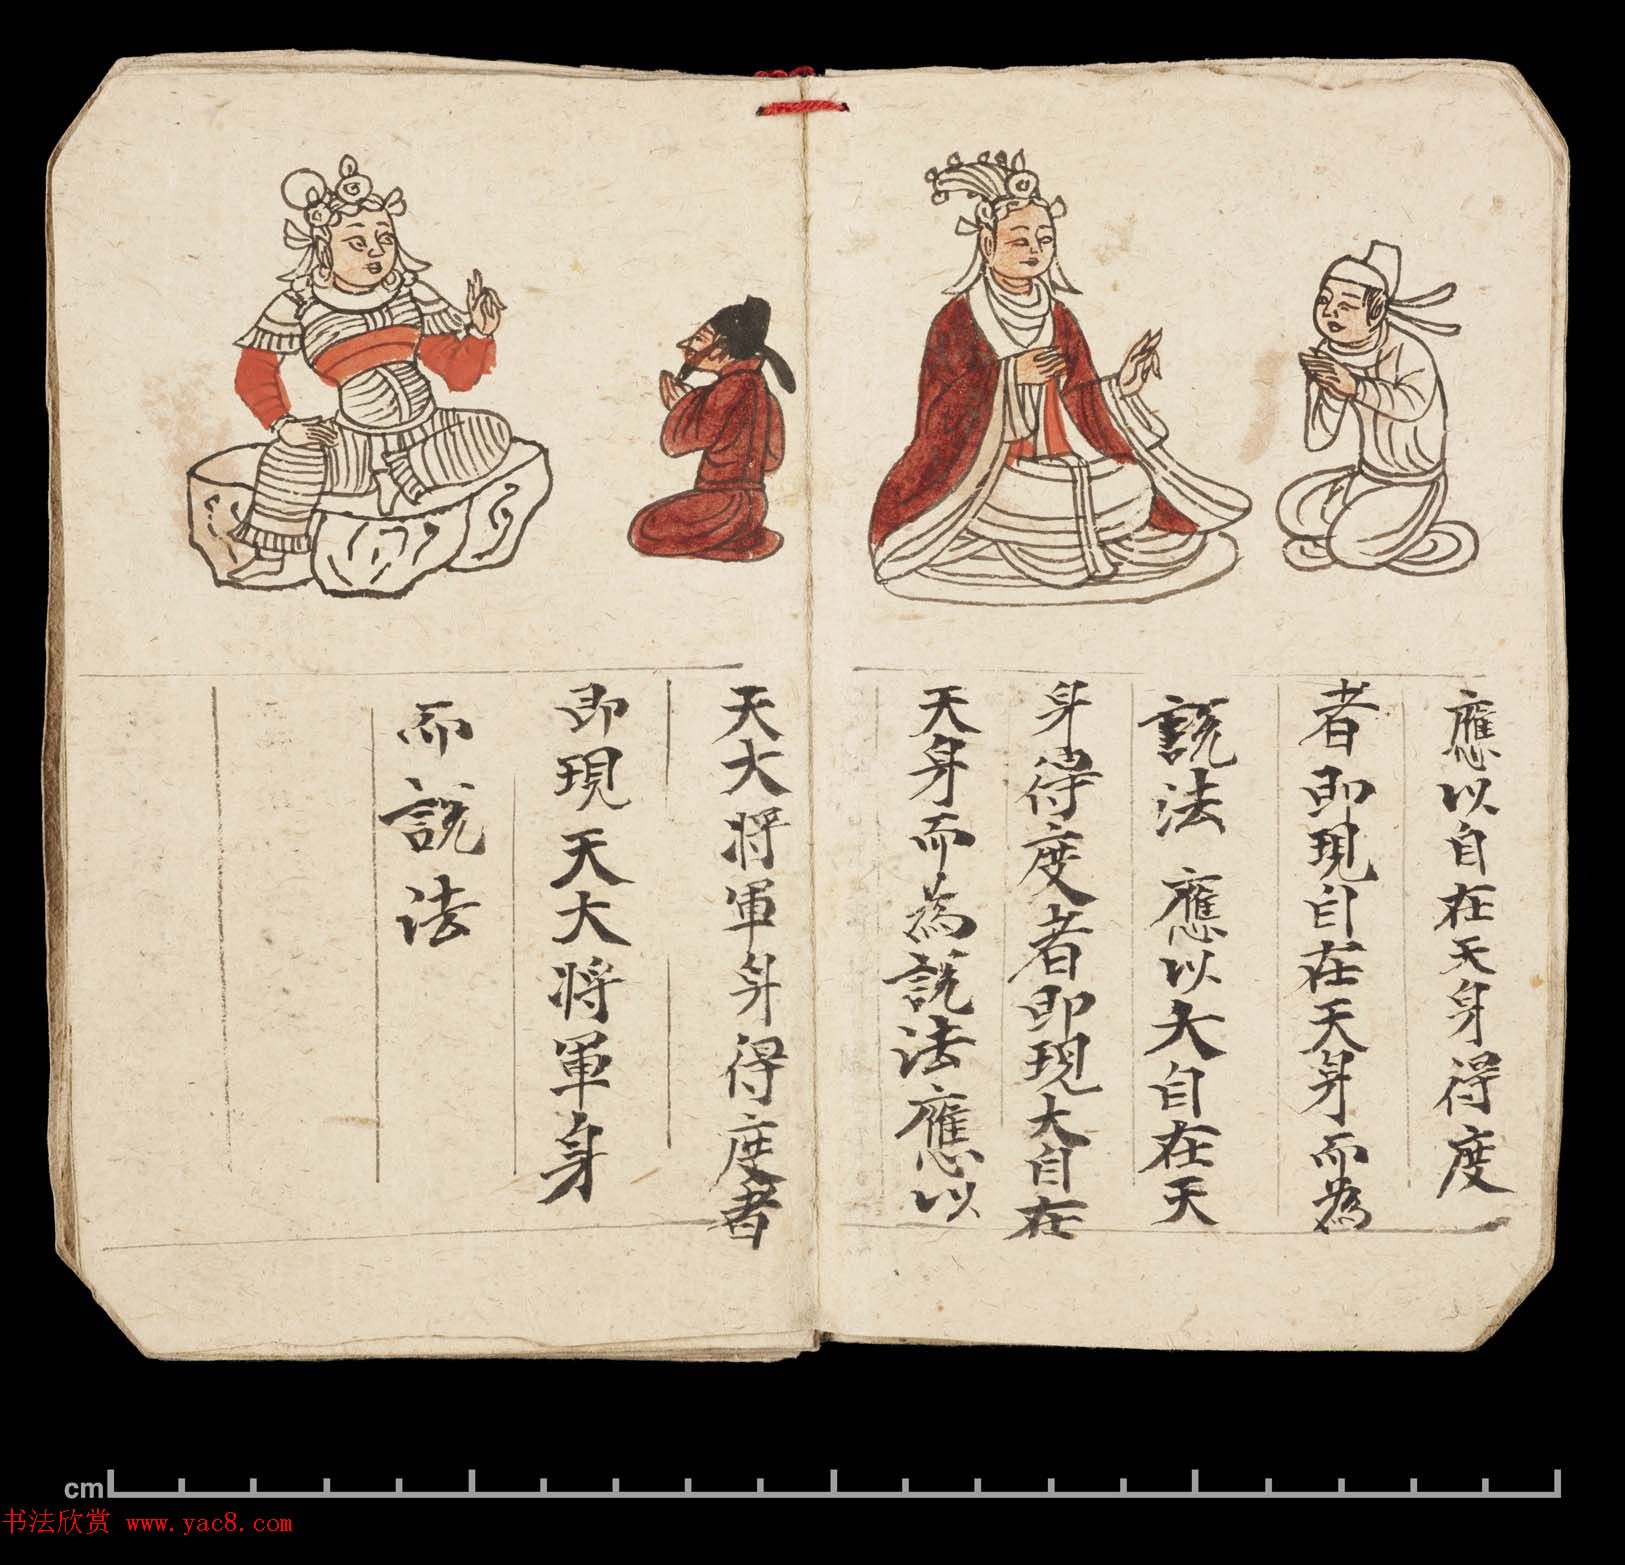 應以自在天身得度
者即現自在天身而為
說法 應以大自在天
身得度者即現大自在
天身而為說法應以
天大將軍身得度者
即現天大將軍身
而說法
cm
书法欣赏 www.yac8.com